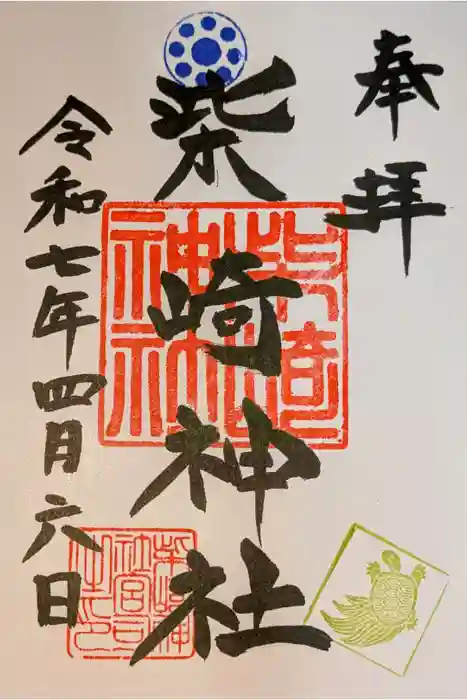 奉拝
柴崎神社
令和七年四月六日
柴崎神社
柴崎神社宮司之印